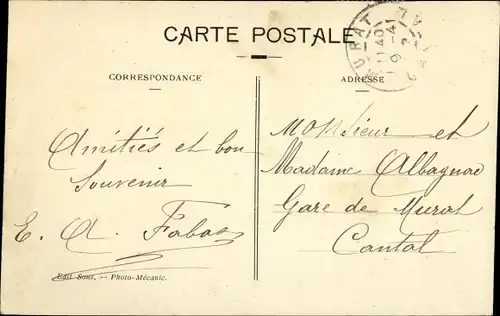 CARTE POSTALE
MURAT
CORRESPONDANCE
ADRESSE
Amitiés et bon
Souvenir
E. A. Fabas
Monsieur et
Madame Albagnac
Gare de Murat
Cantal
Edit Sous. — Photo-Mécanic.